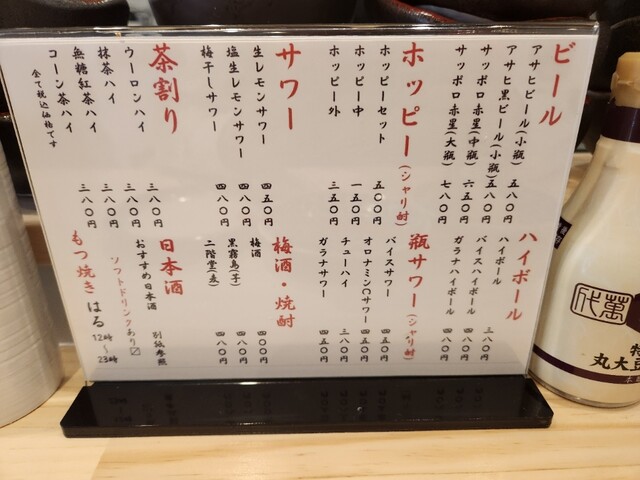 ビール
アサヒビール(小瓶) 五八〇円
アサヒ黒ビール(小瓶) 五八〇円
サッポロ赤星(中瓶) 六五〇円
サッポロ赤星(大瓶) 七八〇円
ホッピー(シャリ酎)
ホッピーセット 五〇〇円
ホッピー中 一五〇円
ホッピー外 三五〇円
サワー
生レモンサワー 四五〇円
塩生レモンサワー 四八〇円
梅干しサワー 四八〇円
茶割り
ウーロンハイ 三八〇円
抹茶ハイ 三八〇円
無糖紅茶ハイ 三八〇円
コーン茶ハイ 三八〇円
全て税込価格です
ハイボール
ハイボール 三八〇円
バイスハイボール 四八〇円
ガラナハイボール 四八〇円
瓶サワー(シャリ酎)
バイスサワー 四五〇円
オロナミン〇サワー 四五〇円
チューハイ 三八〇円
ガラナサワー 四五〇円
梅酒・焼酎
梅酒 四〇〇円
黒霧島(芋) 四八〇円
二階堂(麦) 四八〇円
日本酒
おすすめ日本酒 別紙参照
ソフトドリンクあり〼
もつ焼き はる 12時〜23時
萬代
特
丸大豆